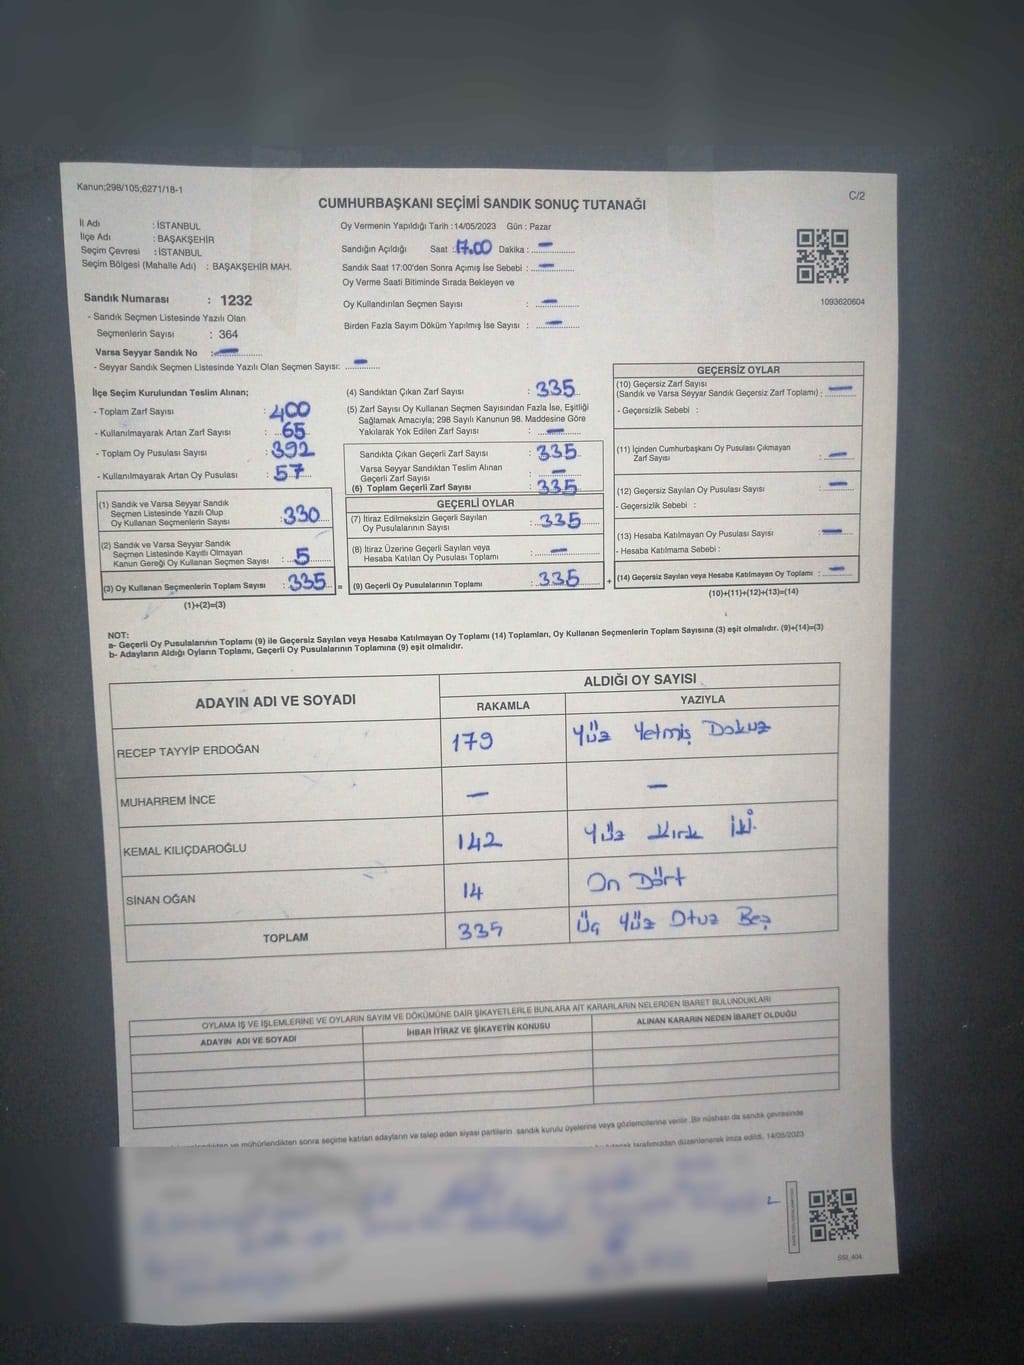 Kanun;298/105;6271/18-1
C/2
CUMHURBAŞKANI SEÇİMİ SANDIK SONUÇ TUTANAĞI
İl Adı : İSTANBUL
İlçe Adı : BAŞAKŞEHİR
Seçim Çevresi : İSTANBUL
Seçim Bölgesi (Mahalle Adı) : BAŞAKŞEHİR MAH.
Oy Vermenin Yapıldığı Tarih : 14/05/2023 Gün : Pazar
Sandığın Açıldığı Saat : 17.00 Dakika : —
Sandık Saat 17:00'den Sonra Açımış İse Sebebi : —
Oy Verme Saati Bitiminde Sırada Bekleyen ve
Oy Kullandırılan Seçmen Sayısı : —
Birden Fazla Sayım Döküm Yapılmış İse Sayısı : —
1093620604
Sandık Numarası : 1232
- Sandık Seçmen Listesinde Yazılı Olan
Seçmenlerin Sayısı : 364
Varsa Seyyar Sandık No : —
- Seyyar Sandık Seçmen Listesinde Yazılı Olan Seçmen Sayısı: —
İlçe Seçim Kurulundan Teslim Alınan;
- Toplam Zarf Sayısı : 400
- Kullanılmayarak Artan Zarf Sayısı : 65
- Toplam Oy Pusulası Sayısı : 392
- Kullanılmayarak Artan Oy Pusulası : 57
(1) Sandık ve Varsa Seyyar Sandık
Seçmen Listesinde Yazılı Olup
Oy Kullanan Seçmenlerin Sayısı : 330
(2) Sandık ve Varsa Seyyar Sandık
Seçmen Listesinde Kayıtlı Olmayan
Kanun Gereği Oy Kullanan Seçmen Sayısı : 5
(3) Oy Kullanan Seçmenlerin Toplam Sayısı : 335 =
(1)+(2)=(3)
(4) Sandıktan Çıkan Zarf Sayısı : 335
(5) Zarf Sayısı Oy Kullanan Seçmen Sayısından Fazla İse, Eşitliği
Sağlamak Amacıyla; 298 Sayılı Kanunun 98. Maddesine Göre
Yakılarak Yok Edilen Zarf Sayısı : —
Sandıkta Çıkan Geçerli Zarf Sayısı : 335
Varsa Seyyar Sandıktan Teslim Alınan
Geçerli Zarf Sayısı : —
(6) Toplam Geçerli Zarf Sayısı : 335
GEÇERLİ OYLAR
(7) İtiraz Edilmeksizin Geçerli Sayılan
Oy Pusulalarının Sayısı : 335
(8) İtiraz Üzerine Geçerli Sayılan veya
Hesaba Katılan Oy Pusulası Toplamı : —
(9) Geçerli Oy Pusulalarının Toplamı : 335 +
GEÇERSİZ OYLAR
(10) Geçersiz Zarf Sayısı
(Sandık ve Varsa Seyyar Sandık Geçersiz Zarf Toplamı) : —
- Geçersizlik Sebebi :
(11) İçinden Cumhurbaşkanı Oy Pusulası Çıkmayan
Zarf Sayısı : —
(12) Geçersiz Sayılan Oy Pusulası Sayısı : —
- Geçersizlik Sebebi :
(13) Hesaba Katılmayan Oy Pusulası Sayısı : —
- Hesaba Katılmama Sebebi :
(14) Geçersiz Sayılan veya Hesaba Katılmayan Oy Toplamı : —
(10)+(11)+(12)+(13)=(14)
NOT:
a- Geçerli Oy Pusulalarının Toplamı (9) ile Geçersiz Sayılan veya Hesaba Katılmayan Oy Toplamı (14) Toplamları, Oy Kullanan Seçmenlerin Toplam Sayısına (3) eşit olmalıdır. (9)+(14)=(3)
b- Adayların Aldığı Oyların Toplamı, Geçerli Oy Pusulalarının Toplamına (9) eşit olmalıdır.
ADAYIN ADI VE SOYADI
ALDIĞI OY SAYISI
RAKAMLA YAZIYLA
RECEP TAYYİP ERDOĞAN 179 Yüz Yetmiş Dokuz
MUHARREM İNCE — —
KEMAL KILIÇDAROĞLU 142 Yüz Kırk İki.
SİNAN OĞAN 14 On Dört
TOPLAM 335 Üç Yüz Otuz Beş
OYLAMA İŞ VE İŞLEMLERİNE VE OYLARIN SAYIM VE DÖKÜMÜNE DAİR ŞİKAYETLERLE BUNLARA AİT KARARLARIN NELERDEN İBARET BULUNDUKLARI
ADAYIN ADI VE SOYADI İHBAR İTİRAZ VE ŞİKAYETİN KONUSU ALINAN KARARIN NEDEN İBARET OLDUĞU
ve mühürlendikten sonra seçime katılan adayların ve talep eden siyasi partilerin sandık kurulu üyelerine veya gözlemcilerine verilir. Bir nüshası da sandık çevresinde
tarafımızdan düzenlenerek imza edildi. 14/05/2023